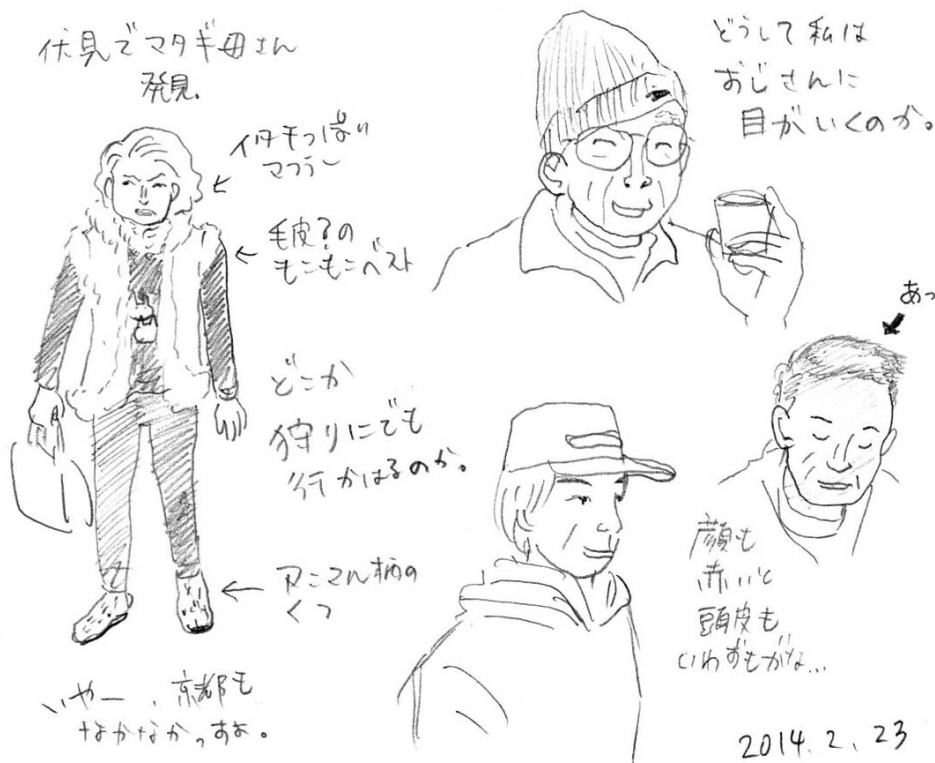 伏見でマタギ母さん
発見。
イタチっぽい
マフラー
毛皮?の
もこもこベスト
どこか
狩りにでも
行かはるのか。
アニマル柄の
くつ
いやー、京都も
なかなかっすな。
どうして私は
おじさんに
目がいくのか。
あっ
顔も
赤いと
頭皮も
いわずもがな…
2014.2.23